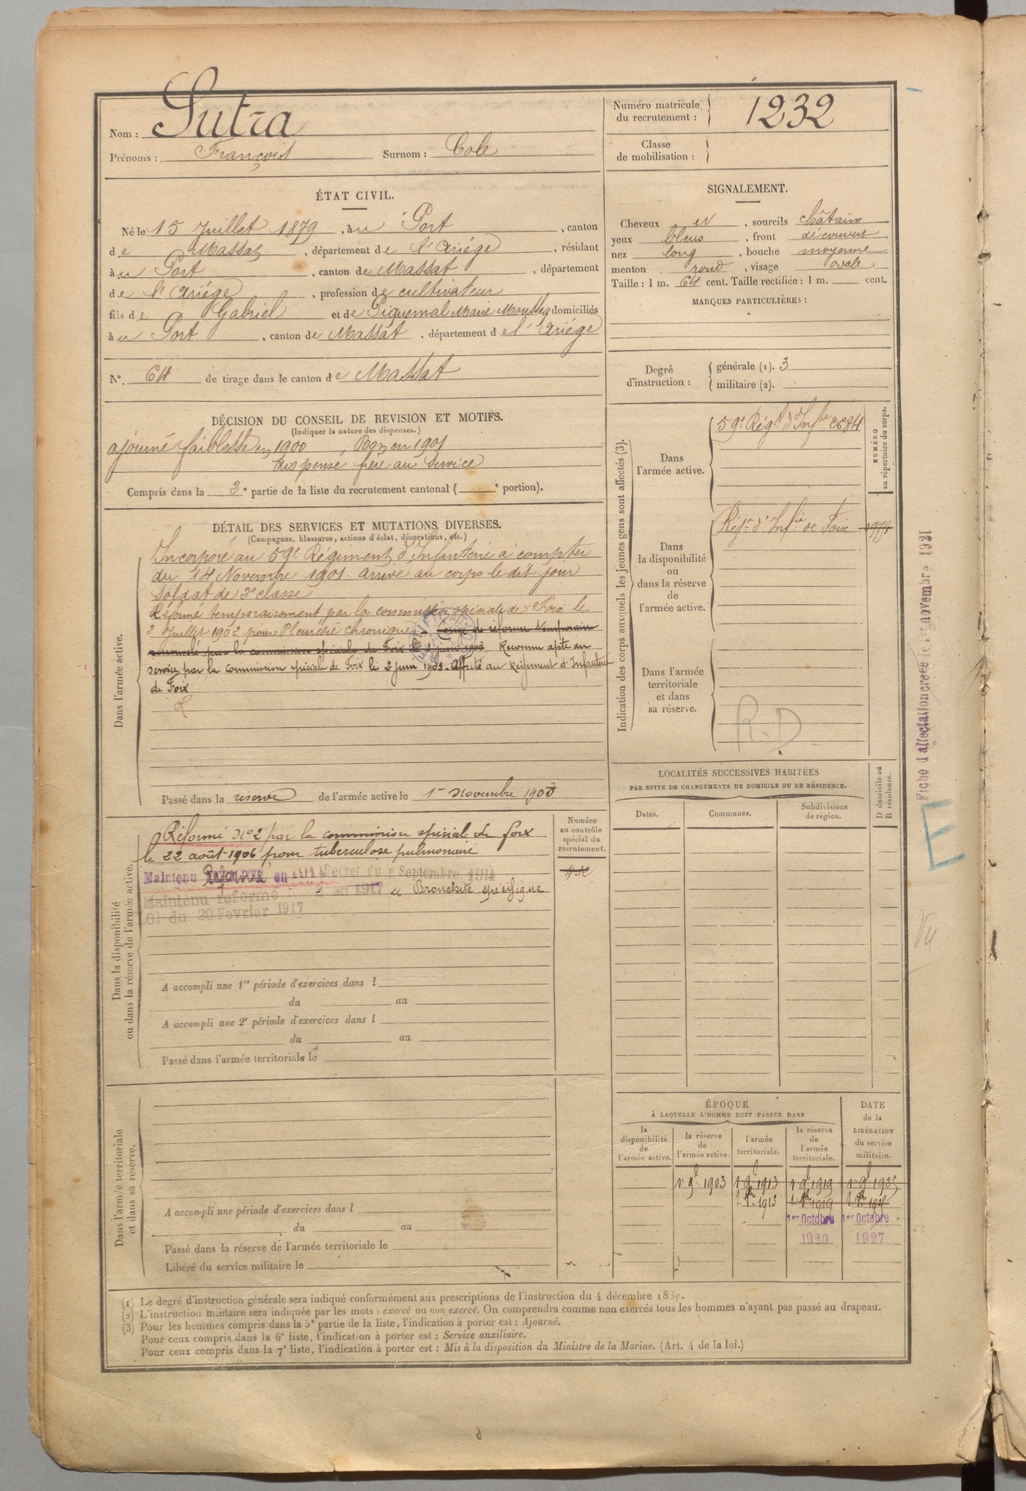 Nom : Sutra
Prénoms : François Surnom : Cole
Numéro matricule du recrutement : 1232
Classe de mobilisation :
ÉTAT CIVIL.
Né le 15 Juillet 1879, à u Port, canton
de Massat, département de l'Ariège, résidant
à u Port, canton de Massat, département
de l'Ariège, profession de cultivateur
fils de Gabriel et de Piquemal Marie domiciliés
à u Port, canton de Massat, département de l'Ariège
N°. 64 de tirage dans le canton de Massat
SIGNALEMENT.
Cheveux et, sourcils châtains
yeux bleus, front découvert
nez long, bouche moyenne
menton rond, visage ovale
Taille : 1 m. 64 cent. Taille rectifiée : 1 m. cent.
MARQUES PARTICULIÈRES :
Degré d'instruction : générale (1). 3
militaire (2).
DÉCISION DU CONSEIL DE REVISION ET MOTIFS.
(Indiquer la nature des dispenses.)
ajourné faiblesse en 1900, Bon en 1901
dispensé frère au service
Compris dans la 3e partie de la liste du recrutement cantonal ( e portion).
DÉTAIL DES SERVICES ET MUTATIONS DIVERSES.
(Campagnes, blessures, actions d'éclat, décorations, etc.)
Dans l'armée active.
Incorporé au 59e Régiment d'Infanterie à compter
du 14 Novembre 1901. arrivé au corps le dit jour
Soldat de 2e classe
Réformé temporairement par la commission spéciale de Foix le
2 Juillet 1902 pour Pleurésie chronique. Congé de réforme temporaire
par la commission spéciale de Foix le 2 juin 1903. Reconnu apte au
service par la commission spéciale de Foix le 2 juin 1903. Affecté au Régiment d'Infanterie
de Foix
Passé dans la réserve de l'armée active le 1er Novembre 1903
Indication des corps auxquels les jeunes gens sont affectés (3).
NUMÉRO au répertoire du corps.
Dans l'armée active.
59e Régt d'Infie 2684
Dans la disponibilité ou dans la réserve de l'armée active.
Régt d'Infie de Foix
Dans l'armée territoriale et dans sa réserve.
R.D
Fiche d'affectation créée le novembre 1921
E
Vu
LOCALITÉS SUCCESSIVES HABITÉES
PAR SUITE DE CHANGEMENTS DE DOMICILE OU DE RÉSIDENCE.
Dates. Communes. Subdivisions de région. D domicile ou R résidence.
Dans la disponibilité ou dans la réserve de l'armée active.
Réformé No 2 par la commission spéciale de Foix
le 22 août 1906 pour tuberculose pulmonaire
Maintenu Réformé Décret du 9 Septembre 1914
Maintenu réformé en 1917 Bronchite spécifique
Loi du 20 Février 1917
Numéro au contrôle spécial du recrutement.
A accompli une 1re période d'exercices dans l
du au
A accompli une 2e période d'exercices dans l
du au
Passé dans l'armée territoriale le
Dans l'armée territoriale et dans sa réserve.
A accompli une période d'exercices dans l
du au
Passé dans la réserve de l'armée territoriale le
Libéré du service militaire le
ÉPOQUE
À LAQUELLE L'HOMME DOIT PASSER DANS
DATE de la LIBÉRATION du service militaire.
la disponibilité de l'armée active. la réserve de l'armée active. l'armée territoriale. la réserve de l'armée territoriale.
1903 1913 1919
1913 1919
1er Octobre 1er Octobre
1920 1927
(1) Le degré d'instruction générale sera indiqué conformément aux prescriptions de l'instruction du 4 décembre 1889.
(2) L'instruction militaire sera indiquée par les mots : exercé ou non exercé. On comprendra comme non exercés tous les hommes n'ayant pas passé au drapeau.
(3) Pour les hommes compris dans la 5e partie de la liste, l'indication à porter est : Ajourné.
Pour ceux compris dans la 6e liste, l'indication à porter est : Service auxiliaire.
Pour ceux compris dans la 7e liste, l'indication à porter est : Mis à la disposition du Ministre de la Marine. (Art. 4 de la loi.)